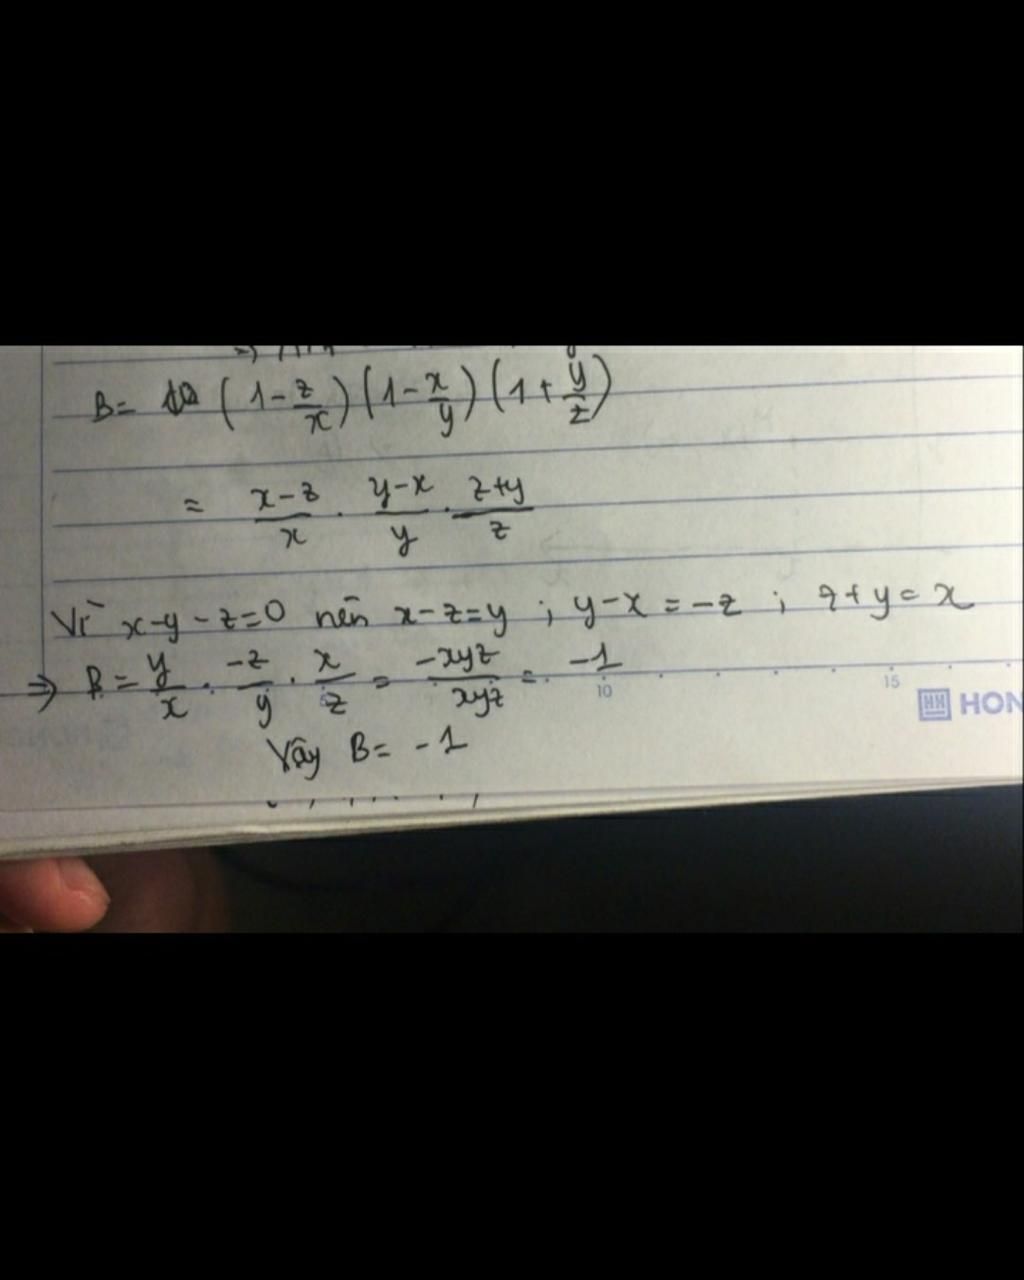 B = (1 - z/x)(1 - x/y)(1 + y/z)
= x-z/x . y-x/y . z+y/z
Vì x-y-z=0 nên x-z=y ; y-x=-z ; z+y=x
⇒ B = y/x . -z/y . x/z = -xyz/xyz = -1
10 15
HON
Vậy B = -1